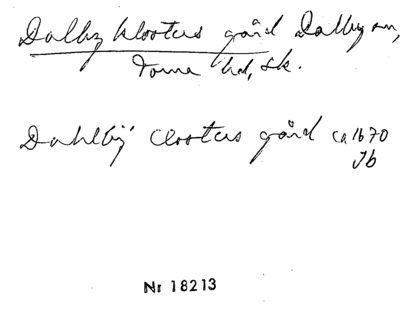 Dalby klosters gård Dalby sn,
Torna hd, Sk.
Dahlbÿ Closters gård ca 1670
Jb
Nr 18213